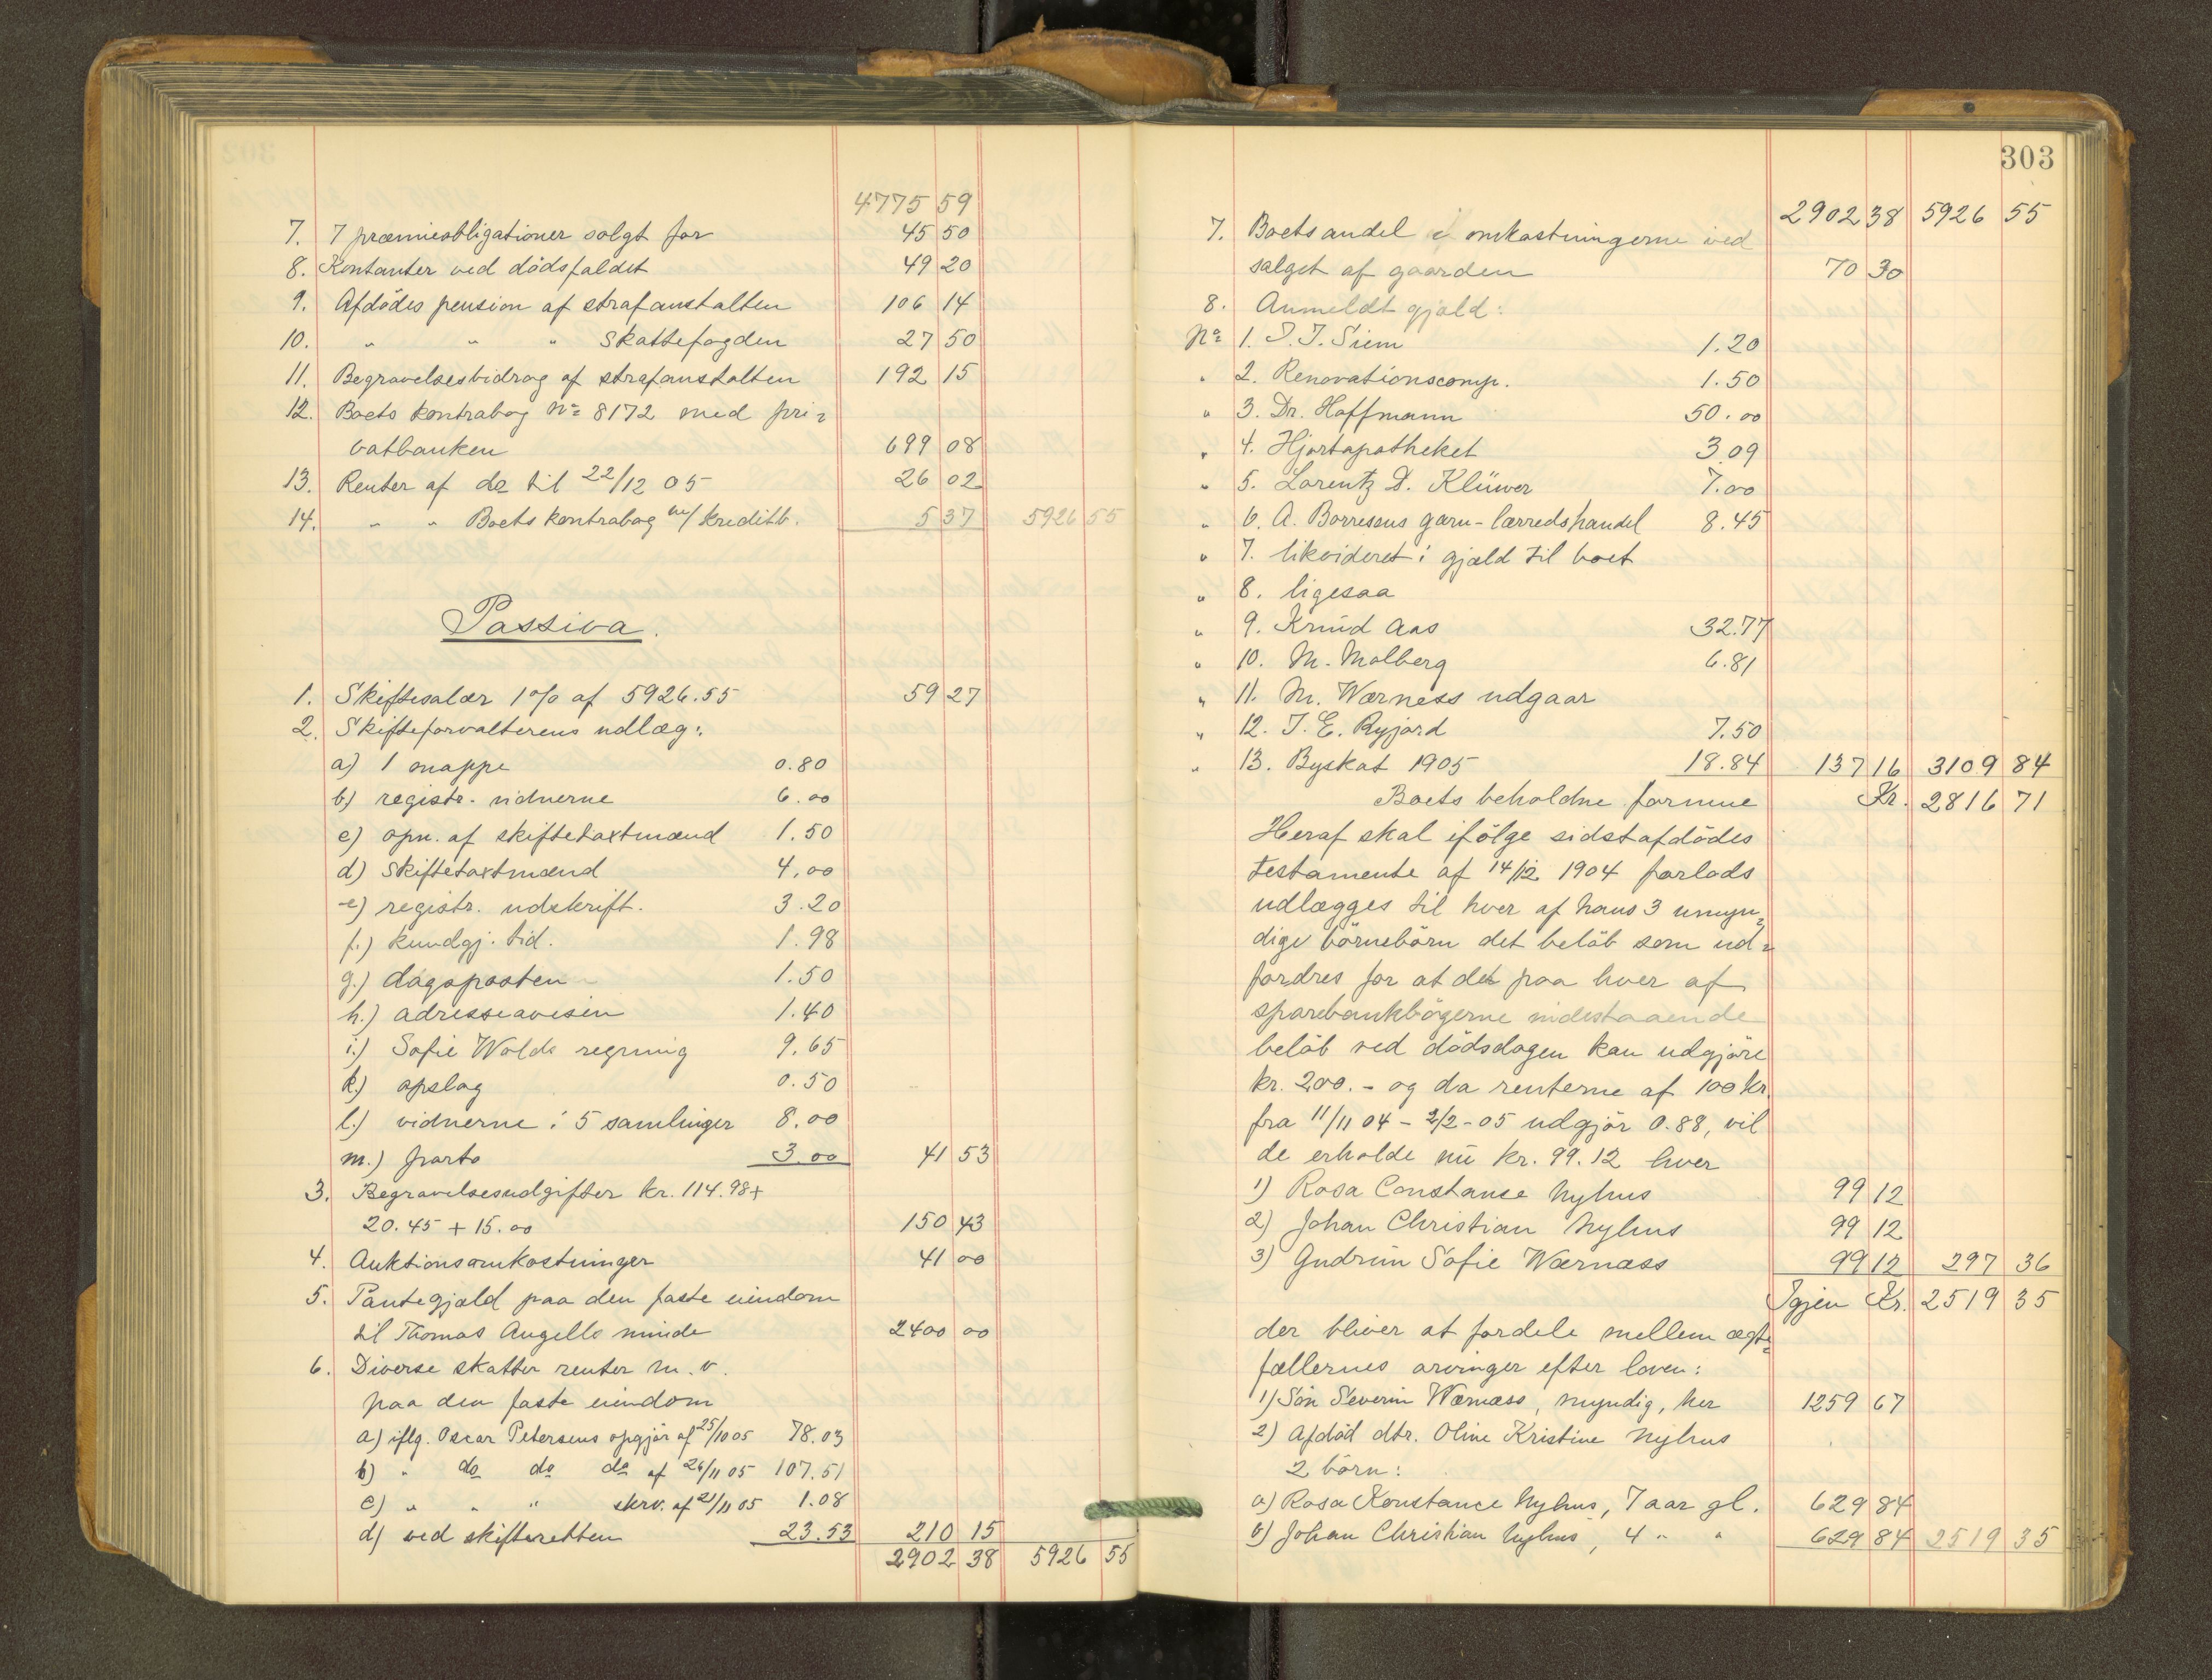 4775 59
7. 7 præmieobligationer solgt for 45 50
8. Kontanter ved dödsfaldet 49 20
9. Afdödes pension af strafanstalten 106 14
10. " " " Skattefogden 27 50
11. Begravelsesbidrag af strafanstalten 192 15
12. Boets kontrabog No 8172 med pri=
vatbanken 699 08
13. Renter af do til 22/12 05 26 02
14. " " Boets kontrabog m/ kreditb. 5 37 5926 55
Passiva.
1. Skiftesalær 1% af 5926.55 59 27
2. Skifteforvalterens udlæg:
a) 1 mappe 0.80
b) registr. vidnerne 6.00
c) opn. af skiftetaxtmænd 1.50
d) Skiftetaxtmænd 4.00
e) registr. udskrift. 3.20
f.) kundgj. tid. 1.98
g.) dagsposten 1.50
h.) adresseavisen 1.40
i.) Sofie Wolds regning 9.65
k.) opslag 0.50
l.) vidnerne i 5 samlinger 8.00
m.) porto 3.00 41 53
3. Begravelsesudgifter kr. 114.98+
20.45 + 15.00 150 43
4. Auktionsomkostninger 41 00
5. Pantegjæld paa den faste eiendom
til Thomas Angells minde 2400 00
6. Diverse skatter renter m.v.
paa den faste eiendom
a) iflg. Oscar Petersens opgjör af 25/10 05 78.03
b) " do do do af 26/11 05 107.51
c) " " " skrv. af 21/11 05 1.08
d) ved skifteretten 23.53 210 15
2902 38 5926 55
303
2902 38 5926 55
7. Boets andel i omkostningerne ved
salget af gaarden 70 30
8. Anmeldt gjæld:
No 1. I. J. Siem 1.20
" 2. Renovationscomp. 1.50
" 3. Dr. Hoffmann 50.00
" 4. Hjortapotheket 3.09
" 5. Lorentz D. Klüwer 7.00
" 6. A. Borresens garn-lærredshandel 8.45
" 7. likvideret i gjæld til boet
" 8. ligesaa
" 9. Knud Aas 32.77
" 10. M. Molberg 6.81
" 11. M. Wærness udgaar
" 12. J. E. Ryjord 7.50
" 13. Byskat 1905 18.84 137 16 3109 84
Boets beholdne formue Kr. 2816 71
Heraf skal ifölge sidstafdödes
testamente af 14/12 1904 forlods
udlægges til hver af hans 3 umyn=
dige börnebörn det belöb som ud=
fordres for at det paa hver af
sparebankbögerne indestaaende
belöb ved dödsdagen kan udgjöre
kr. 200.- og da renterne af 100 kr.
fra 11/11 04 - 2/2-05 udgjör 0.88, vil
de erholde nu kr. 99.12 hver
1) Rosa Constance Nyhus 99 12
2) Johan Christian Nyhus 99 12
3) Gudrun Sofie Wærnæss 99 12 297 36
Igjen Kr. 2519 35
der bliver at fordele mellem ægte=
fællernes arvinger efter loven:
1) Sön Severin Wærnæss, myndig, her 1259 67
2) Afdöd dtr. Oline Kristine Nyhus
2 börn:
a) Rosa Konstance Nyhus, 7 aar gl. 629 84
b) Johan Christian Nyhus, 4 " " 629 84 2519 35